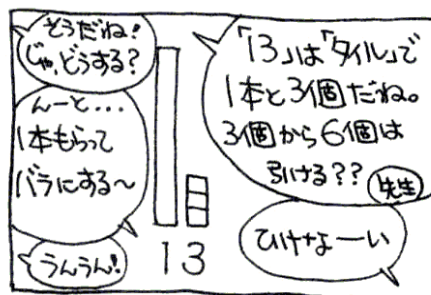 「13」は「タイル」で
1本と3個だね。
3個から6個は
引ける??
先生
ひけなーい
そうだね!
じゃ、どうする?
んーと...
1本もらって
バラにする〜
うんうん!
13